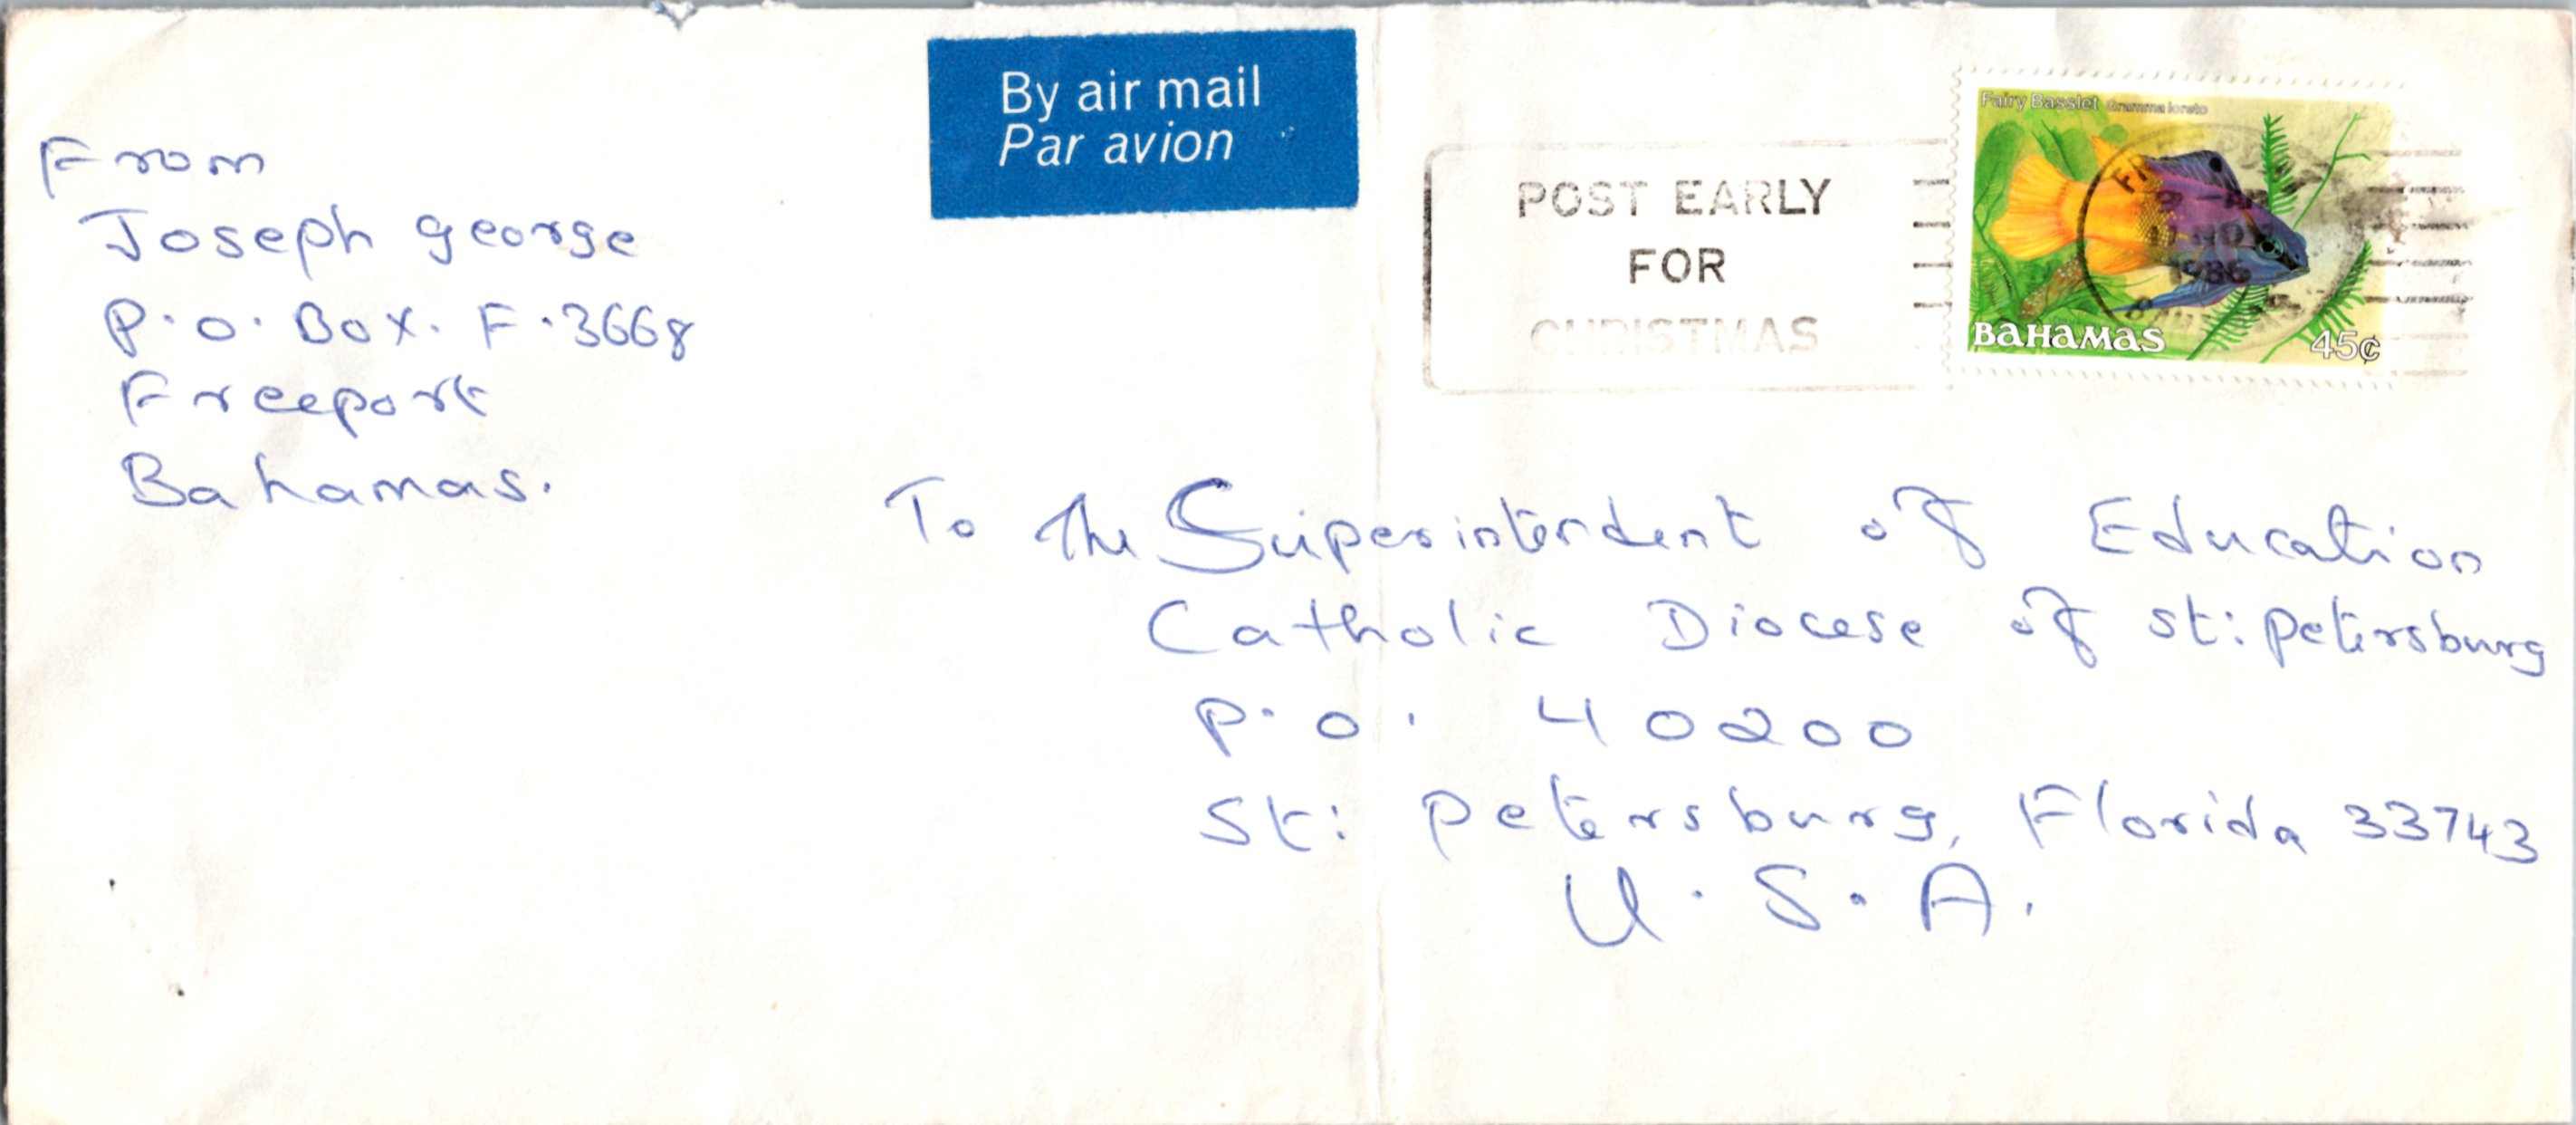 By air mail
Par avion
From
Joseph george
P.O. Box. F.3668
Freeport
Bahamas.
POST EARLY
FOR
CHRISTMAS
Fairy Basslet Gramma loreto
1986
BAHAMAS
45¢
To The Superintendent of Education
Catholic Diocese of St: Petersburg
P.O. 40200
St: Petersburg, Florida 33743
U.S.A.